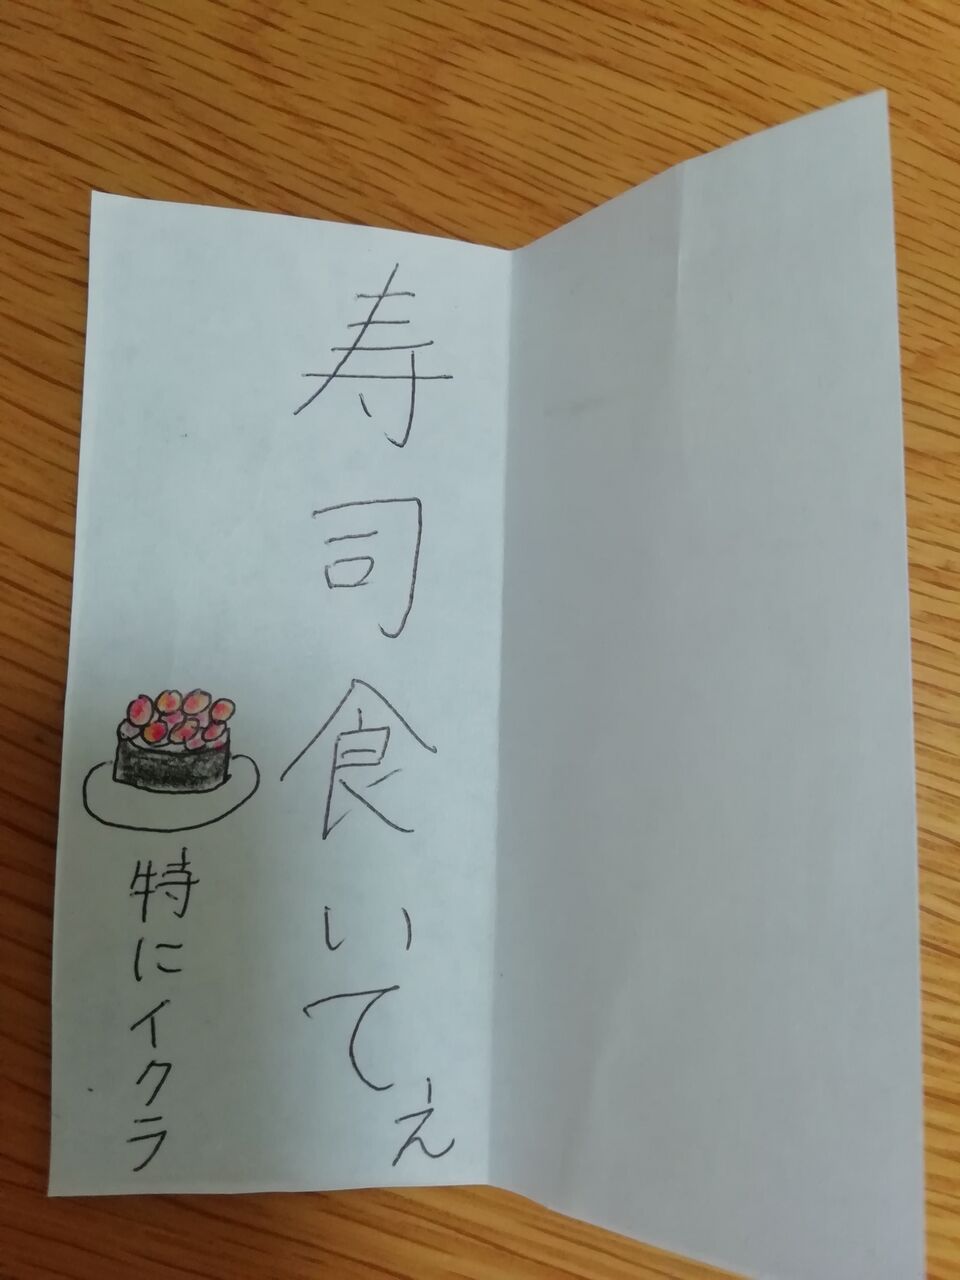 寿司食いてぇ
特にイクラ